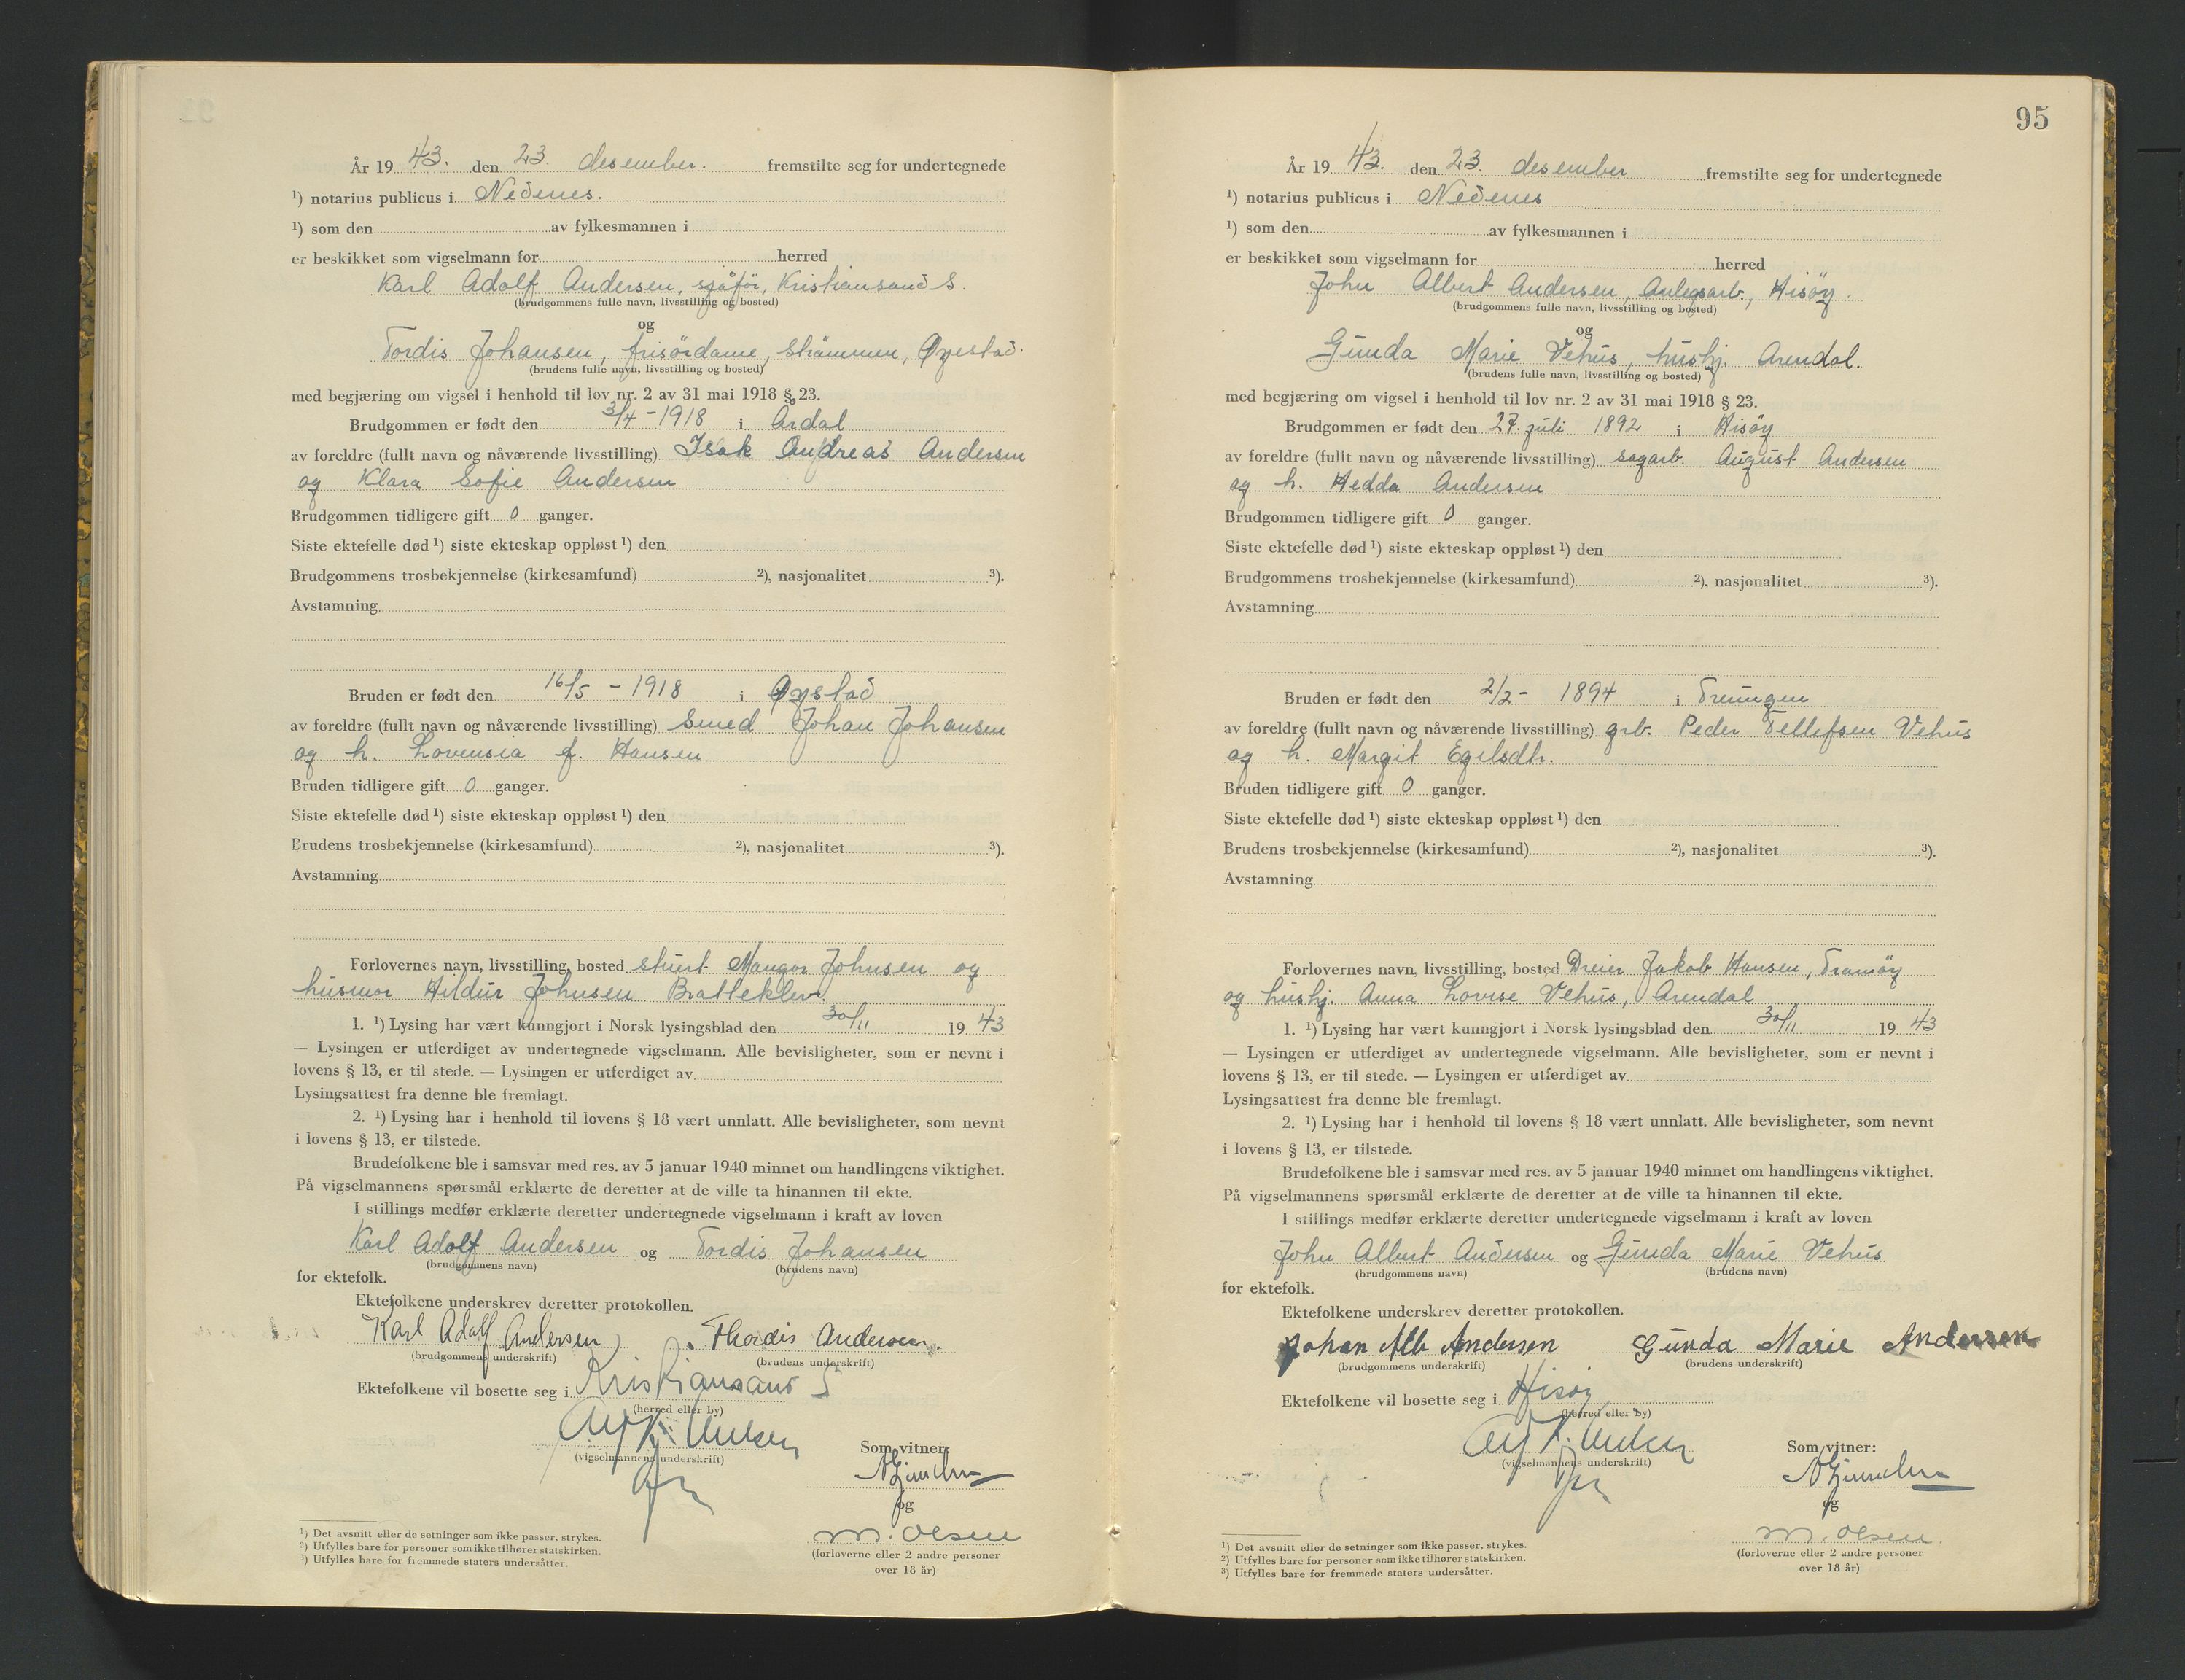 År 19 43. den 23. desember. fremstilte seg for undertegnede
¹) notarius publicus i Nedenes.
¹) som den av fylkesmannen i
er beskikket som vigselmann for herred
Karl Adolf Andersen, sjåför, Kristiansand S.
(brudgommens fulle navn, livsstilling og bosted)
og
Tordis Johansen, frisördame, Strömmen, Øyestad.
(brudens fulle navn, livsstilling og bosted)
med begjæring om vigsel i henhold til lov nr. 2 av 31 mai 1918 § 23.
Brudgommen er født den 3/4 - 1918 i Årdal
av foreldre (fullt navn og nåværende livsstilling) Isak Andreas Andersen
og Klara Sofie Andersen
Brudgommen tidligere gift 0 ganger.
Siste ektefelle død ¹) siste ekteskap oppløst ¹) den
Brudgommens trosbekjennelse (kirkesamfund) ²), nasjonalitet ³).
Avstamning
Bruden er født den 16/5 - 1918 i Øyestad
av foreldre (fullt navn og nåværende livsstilling) Smed Johan Johansen
og h. Lovensia f. Hansen
Bruden tidligere gift 0 ganger.
Siste ektefelle død ¹) siste ekteskap oppløst ¹) den
Brudens trosbekjennelse (kirkesamfund) ²), nasjonalitet ³).
Avstamning
Forlovernes navn, livsstilling, bosted stuert Mangor Johnsen og
husmor Hildur Johnsen Bratteklev.
1. ¹) Lysing har vært kunngjort i Norsk lysingsblad den 30/11 19 43
— Lysingen er utferdiget av undertegnede vigselmann. Alle bevisligheter, som er nevnt i
lovens § 13, er til stede. — Lysingen er utferdiget av
Lysingsattest fra denne ble fremlagt.
2. ¹) Lysing har i henhold til lovens § 18 vært unnlatt. Alle bevisligheter, som nevnt
i lovens § 13, er tilstede.
Brudefolkene ble i samsvar med res. av 5 januar 1940 minnet om handlingens viktighet.
På vigselmannens spørsmål erklærte de deretter at de ville ta hinannen til ekte.
I stillings medfør erklærte deretter undertegnede vigselmann i kraft av loven
Karl Adolf Andersen og Tordis Johansen
(brudgommens navn) (brudens navn)
for ektefolk.
Ektefolkene underskrev deretter protokollen.
Karl Adolf Andersen Thordis Andersen.
(brudgommens underskrift) (brudens underskrift)
Ektefolkene vil bosette seg i Kristiansand S
(herred eller by)
(vigselmannens underskrift)
Som vitner:
og
M. Olsen
(forloverne eller 2 andre personer
over 18 år)
¹) Det avsnitt eller de setninger som ikke passer, strykes.
²) Utfylles bare for personer som ikke tilhører statskirken.
³) Utfylles bare for fremmede staters undersåtter.
95
År 19 43. den 23. desember fremstilte seg for undertegnede
¹) notarius publicus i Nedenes
¹) som den av fylkesmannen i
er beskikket som vigselmann for herred
John Albert Andersen, Anlegsarb., Hisöy.
(brudgommens fulle navn, livsstilling og bosted)
og
Gunda Marie Vehus, hushj. Arendal.
(brudens fulle navn, livsstilling og bosted)
med begjæring om vigsel i henhold til lov nr. 2 av 31 mai 1918 § 23.
Brudgommen er født den 27. juli 1892 i Hisöy
av foreldre (fullt navn og nåværende livsstilling) sagarb. August Andersen
og h. Hedda Andersen
Brudgommen tidligere gift 0 ganger.
Siste ektefelle død ¹) siste ekteskap oppløst ¹) den
Brudgommens trosbekjennelse (kirkesamfund) ²), nasjonalitet ³).
Avstamning
Bruden er født den 2/2 - 1894 i Treungen
av foreldre (fullt navn og nåværende livsstilling) grb. Peder Tellefsen Vehus
og h. Margit Egilsdtr.
Bruden tidligere gift 0 ganger.
Siste ektefelle død ¹) siste ekteskap oppløst ¹) den
Brudens trosbekjennelse (kirkesamfund) ²), nasjonalitet ³).
Avstamning
Forlovernes navn, livsstilling, bosted Dreier Jakob Hansen, Tromöy
og hushj. Anna Lovise Vehus, Arendal
1. ¹) Lysing har vært kunngjort i Norsk lysingsblad den 30/11 19 43
— Lysingen er utferdiget av undertegnede vigselmann. Alle bevisligheter, som er nevnt i
lovens § 13, er til stede. — Lysingen er utferdiget av
Lysingsattest fra denne ble fremlagt.
2. ¹) Lysing har i henhold til lovens § 18 vært unnlatt. Alle bevisligheter, som nevnt
i lovens § 13, er tilstede.
Brudefolkene ble i samsvar med res. av 5 januar 1940 minnet om handlingens viktighet.
På vigselmannens spørsmål erklærte de deretter at de ville ta hinannen til ekte.
I stillings medfør erklærte deretter undertegnede vigselmann i kraft av loven
John Albert Andersen og Gunda Marie Vehus
(brudgommens navn) (brudens navn)
for ektefolk.
Ektefolkene underskrev deretter protokollen.
Johan Alb Andersen Gunda Marie Andersen
(brudgommens underskrift) (brudens underskrift)
Ektefolkene vil bosette seg i Hisöy
(herred eller by)
(vigselmannens underskrift)
Som vitner:
og
M. Olsen.
(forloverne eller 2 andre personer
over 18 år)
¹) Det avsnitt eller de setninger som ikke passer, strykes.
²) Utfylles bare for personer som ikke tilhører statskirken.
³) Utfylles bare for fremmede staters undersåtter.